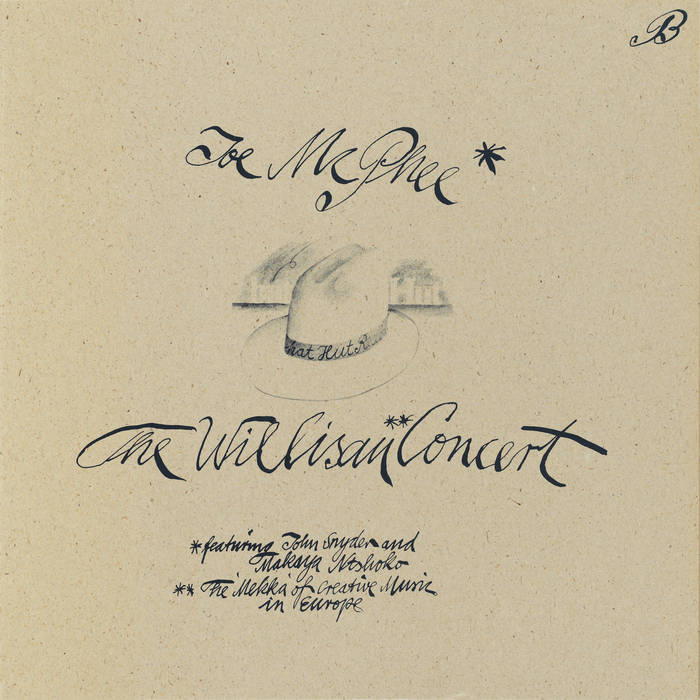 B
Joe McPhee*
hat Hut R
The Willisau** Concert
*featuring John Snyder and
Makaya Ntshoko
** The 'Mekka' of Creative Music
in Europe